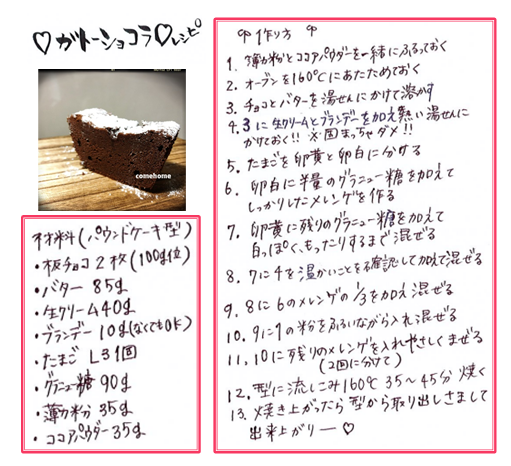 ♡ガトーショコラ♡レシピ
comehome
材料(パウンドケーキ型)
・板チョコ2枚(100g位)
・バター 85g
・生クリーム40g
・ブランデー 10g(なくてもOK)
・たまご L3個
・グラニュー糖 90g
・薄力粉 35g
・ココアパウダー35g
作り方
1. 薄力粉とココアパウダーを一緒にふるっておく
2. オーブンを160℃にあたためておく
3. チョコとバターを湯せんにかけて溶かす
4. 3に生クリームとブランデーを加え熱い湯せんに
かけておく!! ※固まっちゃダメ!!
5. たまごを卵黄と卵白に分ける
6. 卵白に半量のグラニュー糖を加えて
しっかりしたメレンゲを作る
7. 卵黄に残りのグラニュー糖を加えて
白っぽく、もったりするまで混ぜる
8. 7に4を温かいことを確認して加えて混ぜる
9. 8に6のメレンゲの1/3を加え混ぜる
10. 9に1の粉をふるいながら入れ混ぜる
11. 10に残りのメレンゲを入れやさしくまぜる
(2回に分けて)
12. 型に流しこみ160℃ 35〜45分 焼く
13. 焼き上がったら型から取り出しさまして
出来上がりー♡